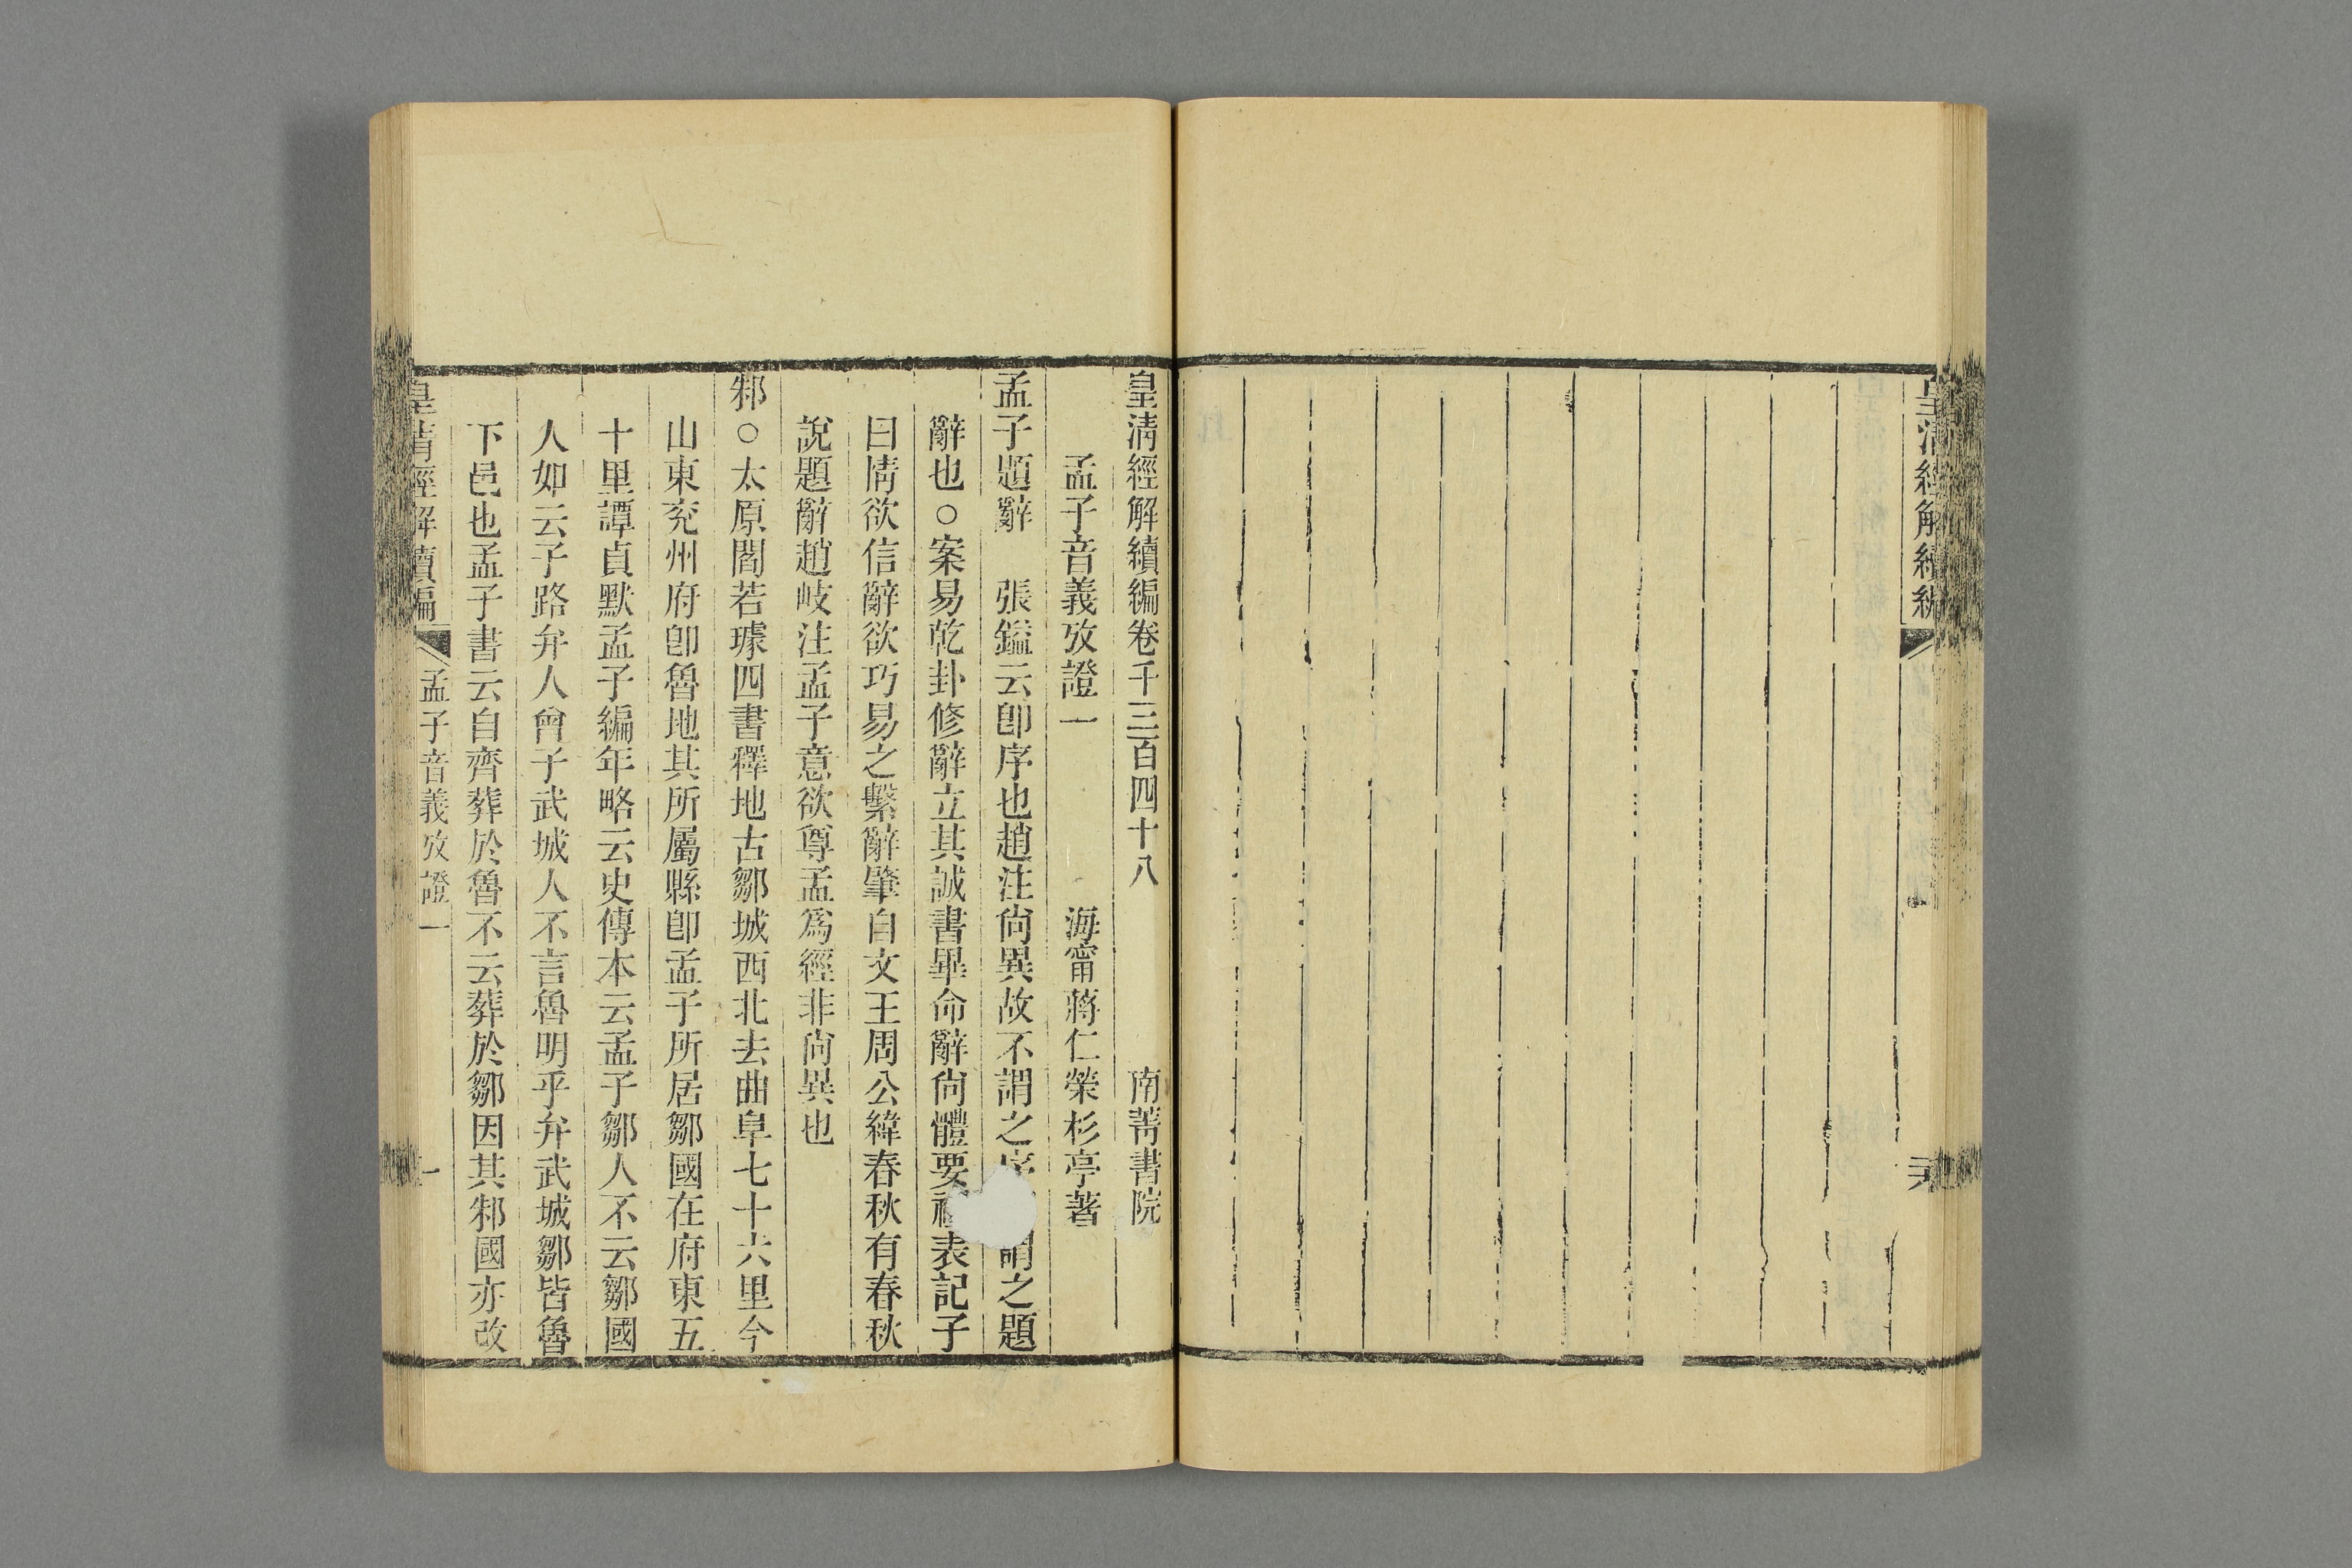 皇清經解續編
皇清經解續編卷千三百四十八 南菁書院
孟子音義攷證一 海甯蔣仁榮杉亭著
孟子題辭 張鎰云卽序也趙注尙異故不謂之序 謂之題
辭也○案易乾卦修辭立其誠書畢命辭尙體要 表記子
曰情欲信辭欲巧易之繫辭肇自文王周公緯春秋有春秋
說題辭趙岐注孟子意欲尊孟爲經非尙異也
邾○太原閻若璩四書釋地古鄒城西北去曲阜七十六里今
山東兖州府卽魯地其所屬縣卽孟子所居鄒國在府東五
十里譚貞默孟子編年略云史傳本云孟子鄒人不云鄒國
人如云子路弁人曾子武城人不言魯明乎弁武城鄒皆魯
下邑也孟子書云自齊葬於魯不云葬於鄒因其邾國亦改
皇清經解續編 孟子音義攷證一 一